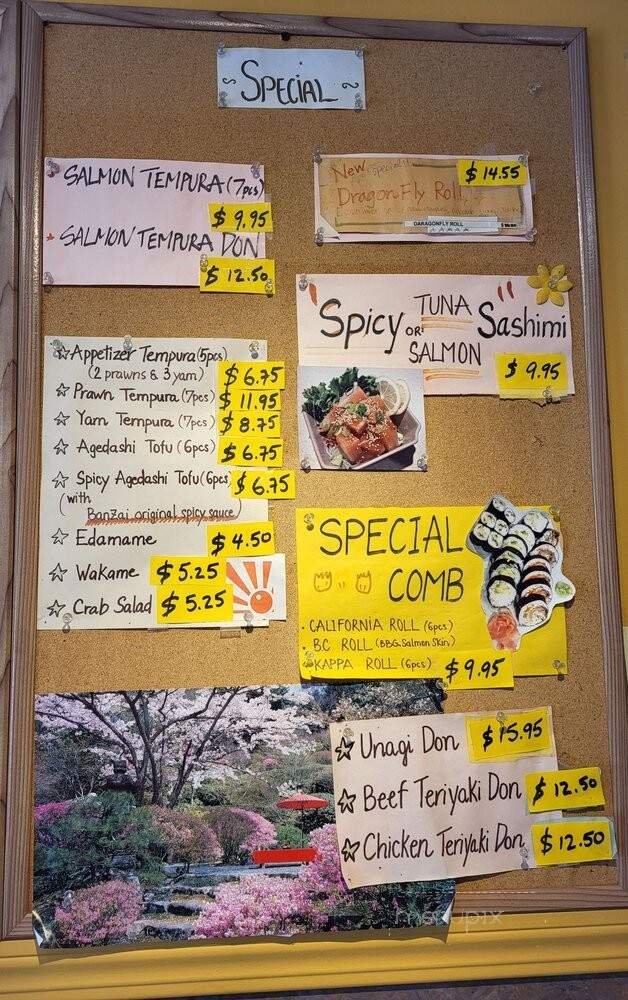 ~ SPECIAL ~
SALMON TEMPURA (7pcs)
$9.95
SALMON TEMPURA DON
$12.50
New special!
$14.55
DragonFly Roll
DARAGONFLY ROLL
Spicy TUNA OR SALMON Sashimi
$9.95
☆ Appetizer Tempura (5pcs)
(2 prawns & 3 yam) $6.75
☆ Prawn Tempura (7pcs) $11.95
☆ Yam Tempura (7pcs) $8.75
☆ Agedashi Tofu (6pcs) $6.75
☆ Spicy Agedashi Tofu (6pcs) $6.75
(with
Banzai original spicy sauce)
☆ Edamame $4.50
☆ Wakame $5.25
☆ Crab Salad $5.25
SPECIAL
COMB
· CALIFORNIA ROLL (6pcs)
· BC ROLL (BBG Salmon Skin)
· KAPPA ROLL (6pcs) $9.95
☆ Unagi Don $15.95
☆ Beef Teriyaki Don $12.50
☆ Chicken Teriyaki Don $12.50
menupix